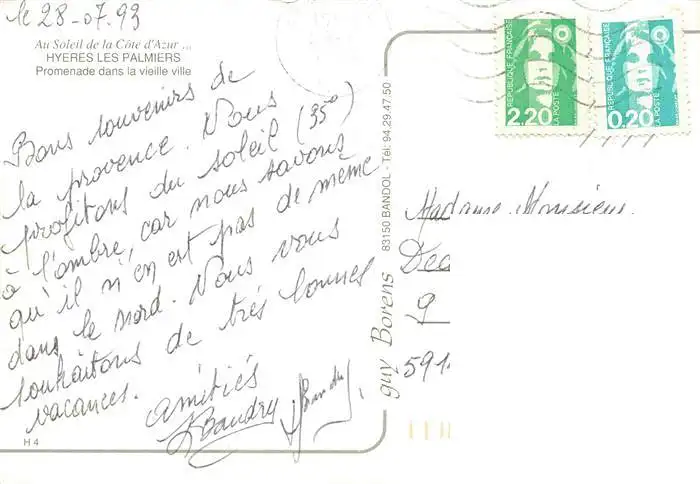 le 28-07.93
Au Soleil de la Côte d'Azur ...
HYERES LES PALMIERS
Promenade dans la vieille ville
Bons souvenirs de
la provence. Nous
profitons du soleil (35°)
à l'ombre, car nous savons
qu'il n'en est pas de même
dans le nord. Nous vous
souhaitons de très bonnes
vacances.
amitiés
Baudry
H 4
guy Borens
83150 BANDOL - Tél: 94.29.47.50
REPUBLIQUE FRANÇAISE
2,20
LA POSTE
REPUBLIQUE FRANÇAISE
0,20
LA POSTE
Madame, Monsieur.
9